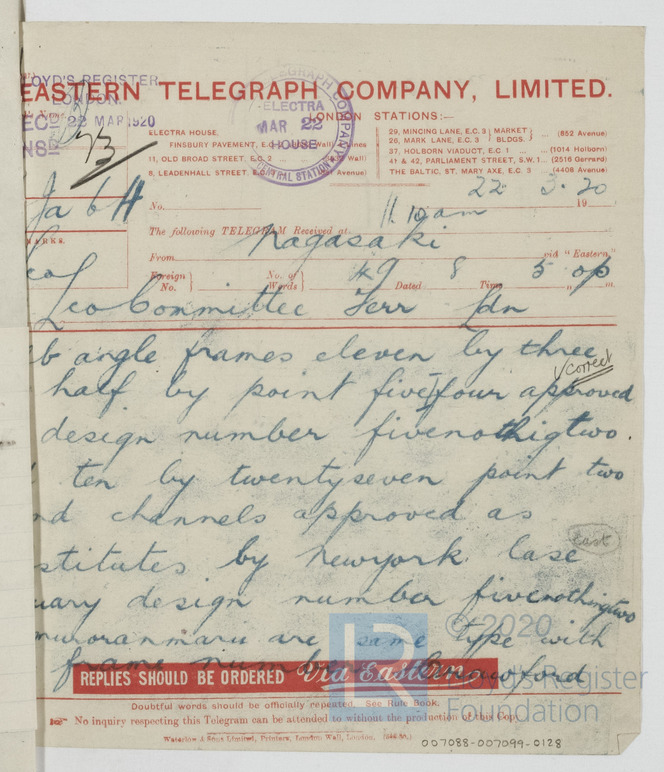 LOYD'S REGISTER
LONDON.
EASTERN TELEGRAPH COMPANY, LIMITED.
EC 22 MAR 1920
TELEGRAPH COMPANY
ELECTRA
MAR 22
HOUSE
CENTRAL STATION
LONDON STATIONS:—
ELECTRA HOUSE,
FINSBURY PAVEMENT, E.C.
11, OLD BROAD STREET, E.C. 2
8, LEADENHALL STREET, E.C.
29, MINCING LANE, E.C. 3
26, MARK LANE, E.C. 3
MARKET BLDGS.
(652 Avenue)
37, HOLBORN VIADUCT, E.C. 1 ... (1014 Holborn)
41 & 42, PARLIAMENT STREET, S.W. 1... (2516 Gerrard)
THE BALTIC, ST. MARY AXE, E.C. 3 (4408 Avenue)
22 3. 20
19
Ja 6 H
No.
11.10 am
The following TELEGRAM Received at
ARKS.
From Nagasaki via "Eastern"
Foreign No. No. of Words 49 Dated 8 Time 5 0 p m.
Leo Committee Ferr Ldn
b angle frames eleven by three
correct
half by point five four approved
design number fivenothigtwo.
ten by twentyseven point two
nd channels approved as
stitutes by Newyork lase
east
uary design number fivenothingtwo
muroranmaru are same type with
frame
REPLIES SHOULD BE ORDERED Via Eastern
Doubtful words should be officially repeated. See Rule Book.
No inquiry respecting this Telegram can be attended to without the production of this Copy.
Waterlow & Sons Limited, Printers, London Wall, London.
©2020
LR
Lloyd's Register
Foundation
007088-007099-0128